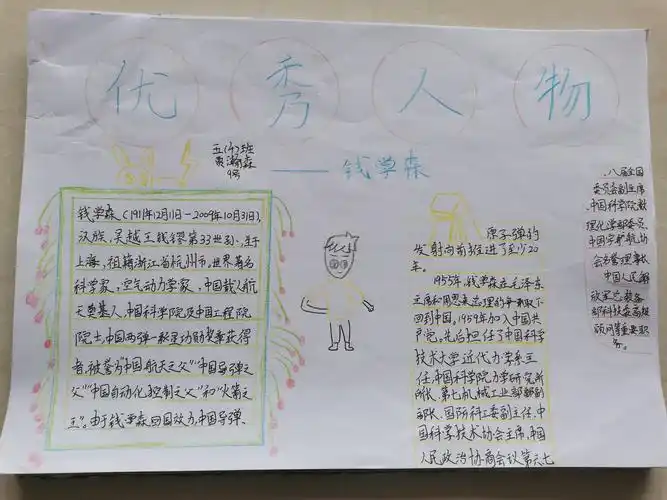 优秀人物
五(4)班
9号
——钱学森
钱学森(1911年12月11日-2009年10月31日),
汉族,吴越王钱镠第33世孙,生于
上海,祖籍浙江省杭州市。世界著名
科学家,空气动力学家,中国载人航
天奠基人,中国科学院及中国工程院
院士,中国两弹一星功勋奖章获得
者,被誉为“中国航天之父”“中国导弹之
父”“中国自动化控制之父”和“火箭之
王”。由于钱学森回国效力,中国导弹、
原子弹的
发射向前推进了至少20
年。
1955年,钱学森在毛泽东
主席和周恩来总理的争取下
回到中国。1959年加入中国共
产党,先后担任了中国科学
技术大学近代力学系主
任,中国科学院力学研究所
所长、第七机械工业部副部
部长、国防科工委副主任、中
国科学技术协会主席、中国
人民政治协商会议第六七
、八届全国
委员会副主席
、中国科学院数
理化学部委员、
中国宇航协
会名誉理事长
、中国人民解
放军总装备
部科技委高级
顾问等重要职
务。